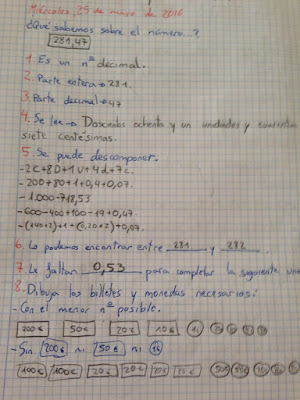 Miércoles, 25 de mayo de 2016
¿Qué sabemos sobre el número...?
281,47
1. Es un nº decimal.
2. Parte entera → 281.
3. Parte decimal → 47
4. Se lee → Doscientos ochenta y un unidades y cuarenta
siete centésimas.
5. Se puede descomponer.
- 2C + 8D + 1U + 4d + 7c.
- 200 + 80 + 1 + 0,4 + 0,07.
- 1.000 - 718,53
- 600 - 400 + 100 - 19 + 0,47.
- (140×2) + 1 + (0,20×2) + 0,07.
6. Lo podemos encontrar entre 281 y 282
7. Le faltan 0,53 para completar la siguiente
8. Dibuja los billetes y monedas necesarios:
- Con el menor nº posible.
200€ 50€ 20€ 10€ 1€
- Sin 200€ ni 50€ ni 1€
100€ 100€ 20€ 20€ 20€